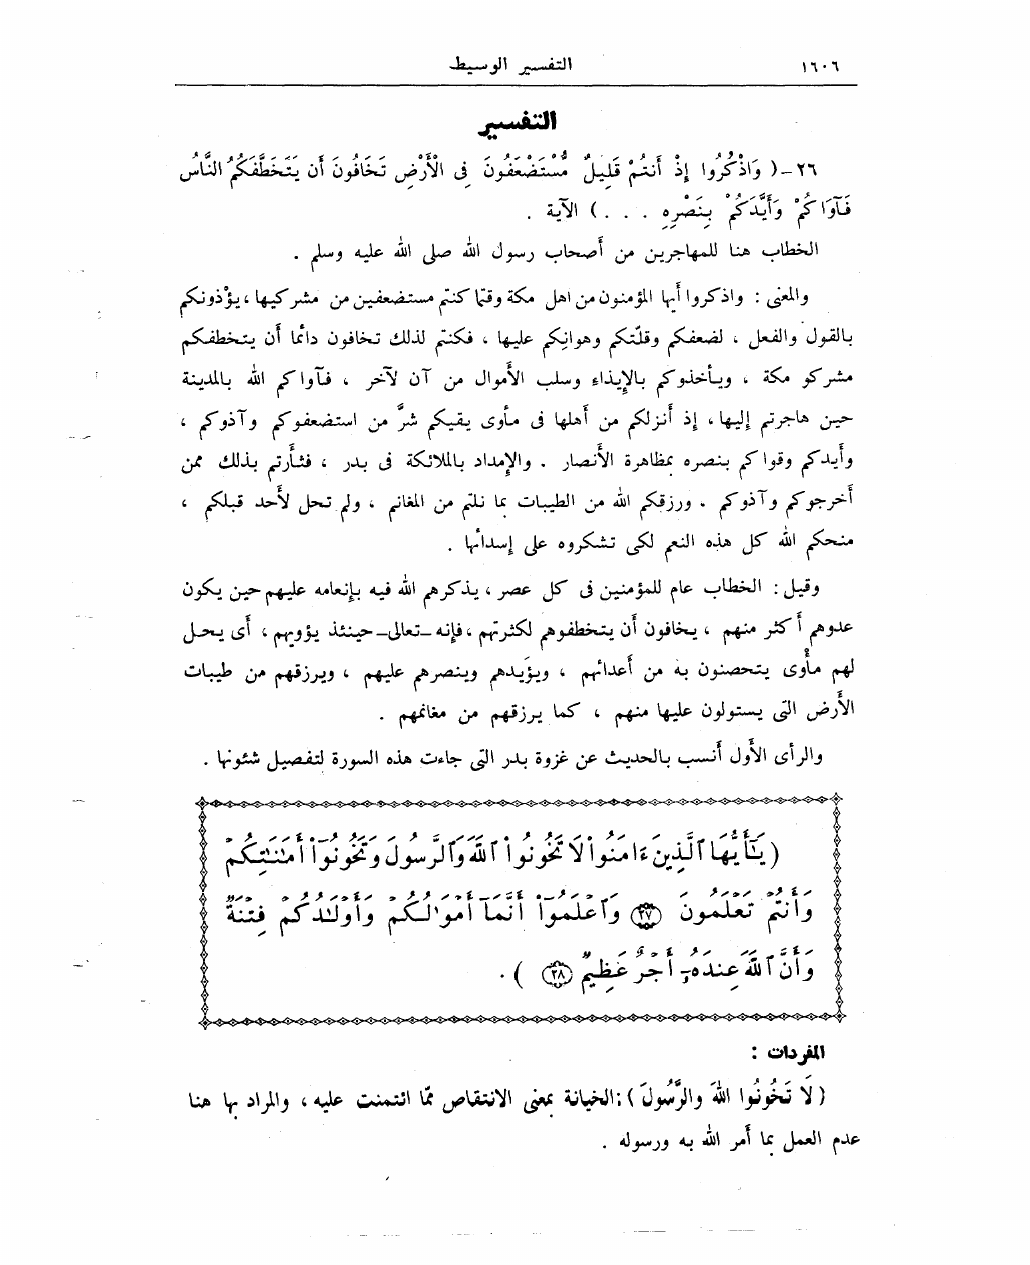 ١٦٠٦
التفسير الوسيط
التفسير
٢٦ـ( وَاذْكُرُوا إِذْ أَنتُمْ قَلِيلٌ مُّسْتَضْعَفُونَ فِى الْأَرْضِ تَخَافُونَ أَن يَتَخَطَّفَكُمُ النَّاسُ
فَآوَاكُمْ وَأَيَّدَكُمْ بِنَصْرِهِ . . . ) الآية .
الخطاب هنا للمهاجرين من أصحاب رسول الله صلى الله عليه وسلم .
والمعنى : واذكروا أيها المؤمنون من اهل مكة وقتما كنتم مستضعفين من مشركيها ، يؤذونكم
بالقول والفعل ، لضعفكم وقلّتكم وهوانكم عليها ، فكنتم لذلك تخافون دائما أن يتخطفكم
مشركو مكة ، ويأخذوكم بالإيذاء وسلب الأموال من آن لآخر ، فآواكم الله بالمدينة
حين هاجرتم إليها، إذ أنزلكم من أهلها فى مأوى يقيكم شرَّ من استضعفوكم وآذوكم ،
وأيدكم وقواكم بنصره بمظاهرة الأنصار . والإمداد بالملائكة فى بدر ، فثأرتم بذلك ممن
أخرجوكم وآذوكم . ورزقكم الله من الطيبات بما نلتم من المغانم ، ولم تحل لأحد قبلكم ،
منحكم الله كل هذه النعم لكى تشكروه على إسدائها .
وقيل : الخطاب عام للمؤمنين فى كل عصر ، يذكرهم الله فيه بإنعامه عليهم حين يكون
عدوهم أكثر منهم ، يخافون أن يتخطفوهم لكثرتهم ، فإنه ـتعالىـ حينئذ يؤويهم ، أى يحل
لهم مأْوى يتحصنون به من أعدائهم ، ويؤيدهم وينصرهم عليهم ، ويرزقهم من طيبات
الأرض التى يستولون عليها منهم ، كما يرزقهم من مغانمهم .
والرأى الأول أنسب بالحديث عن غزوة بدر التى جاءت هذه السورة لتفصيل شئونها .
(يَٰٓأَيُّهَا ٱلَّذِينَ ءَامَنُوا۟ لَا تَخُونُوا۟ ٱللَّهَ وَٱلرَّسُولَ وَتَخُونُوٓا۟ أَمَٰنَٰتِكُمْ
وَأَنتُمْ تَعْلَمُونَ ٢٧ وَٱعْلَمُوٓا۟ أَنَّمَآ أَمْوَٰلُكُمْ وَأَوْلَٰدُكُمْ فِتْنَةٌ
وَأَنَّ ٱللَّهَ عِندَهُۥٓ أَجْرٌ عَظِيمٌ ٢٨ ) .
المفردات :
( لَا تَخُونُوا اللهَ وَالرَّسُولَ ) : الخيانة بمعنى الانتقاص ممّا ائتمنت عليه ، والمراد بها هنا
عدم العمل بما أمر الله به ورسوله .